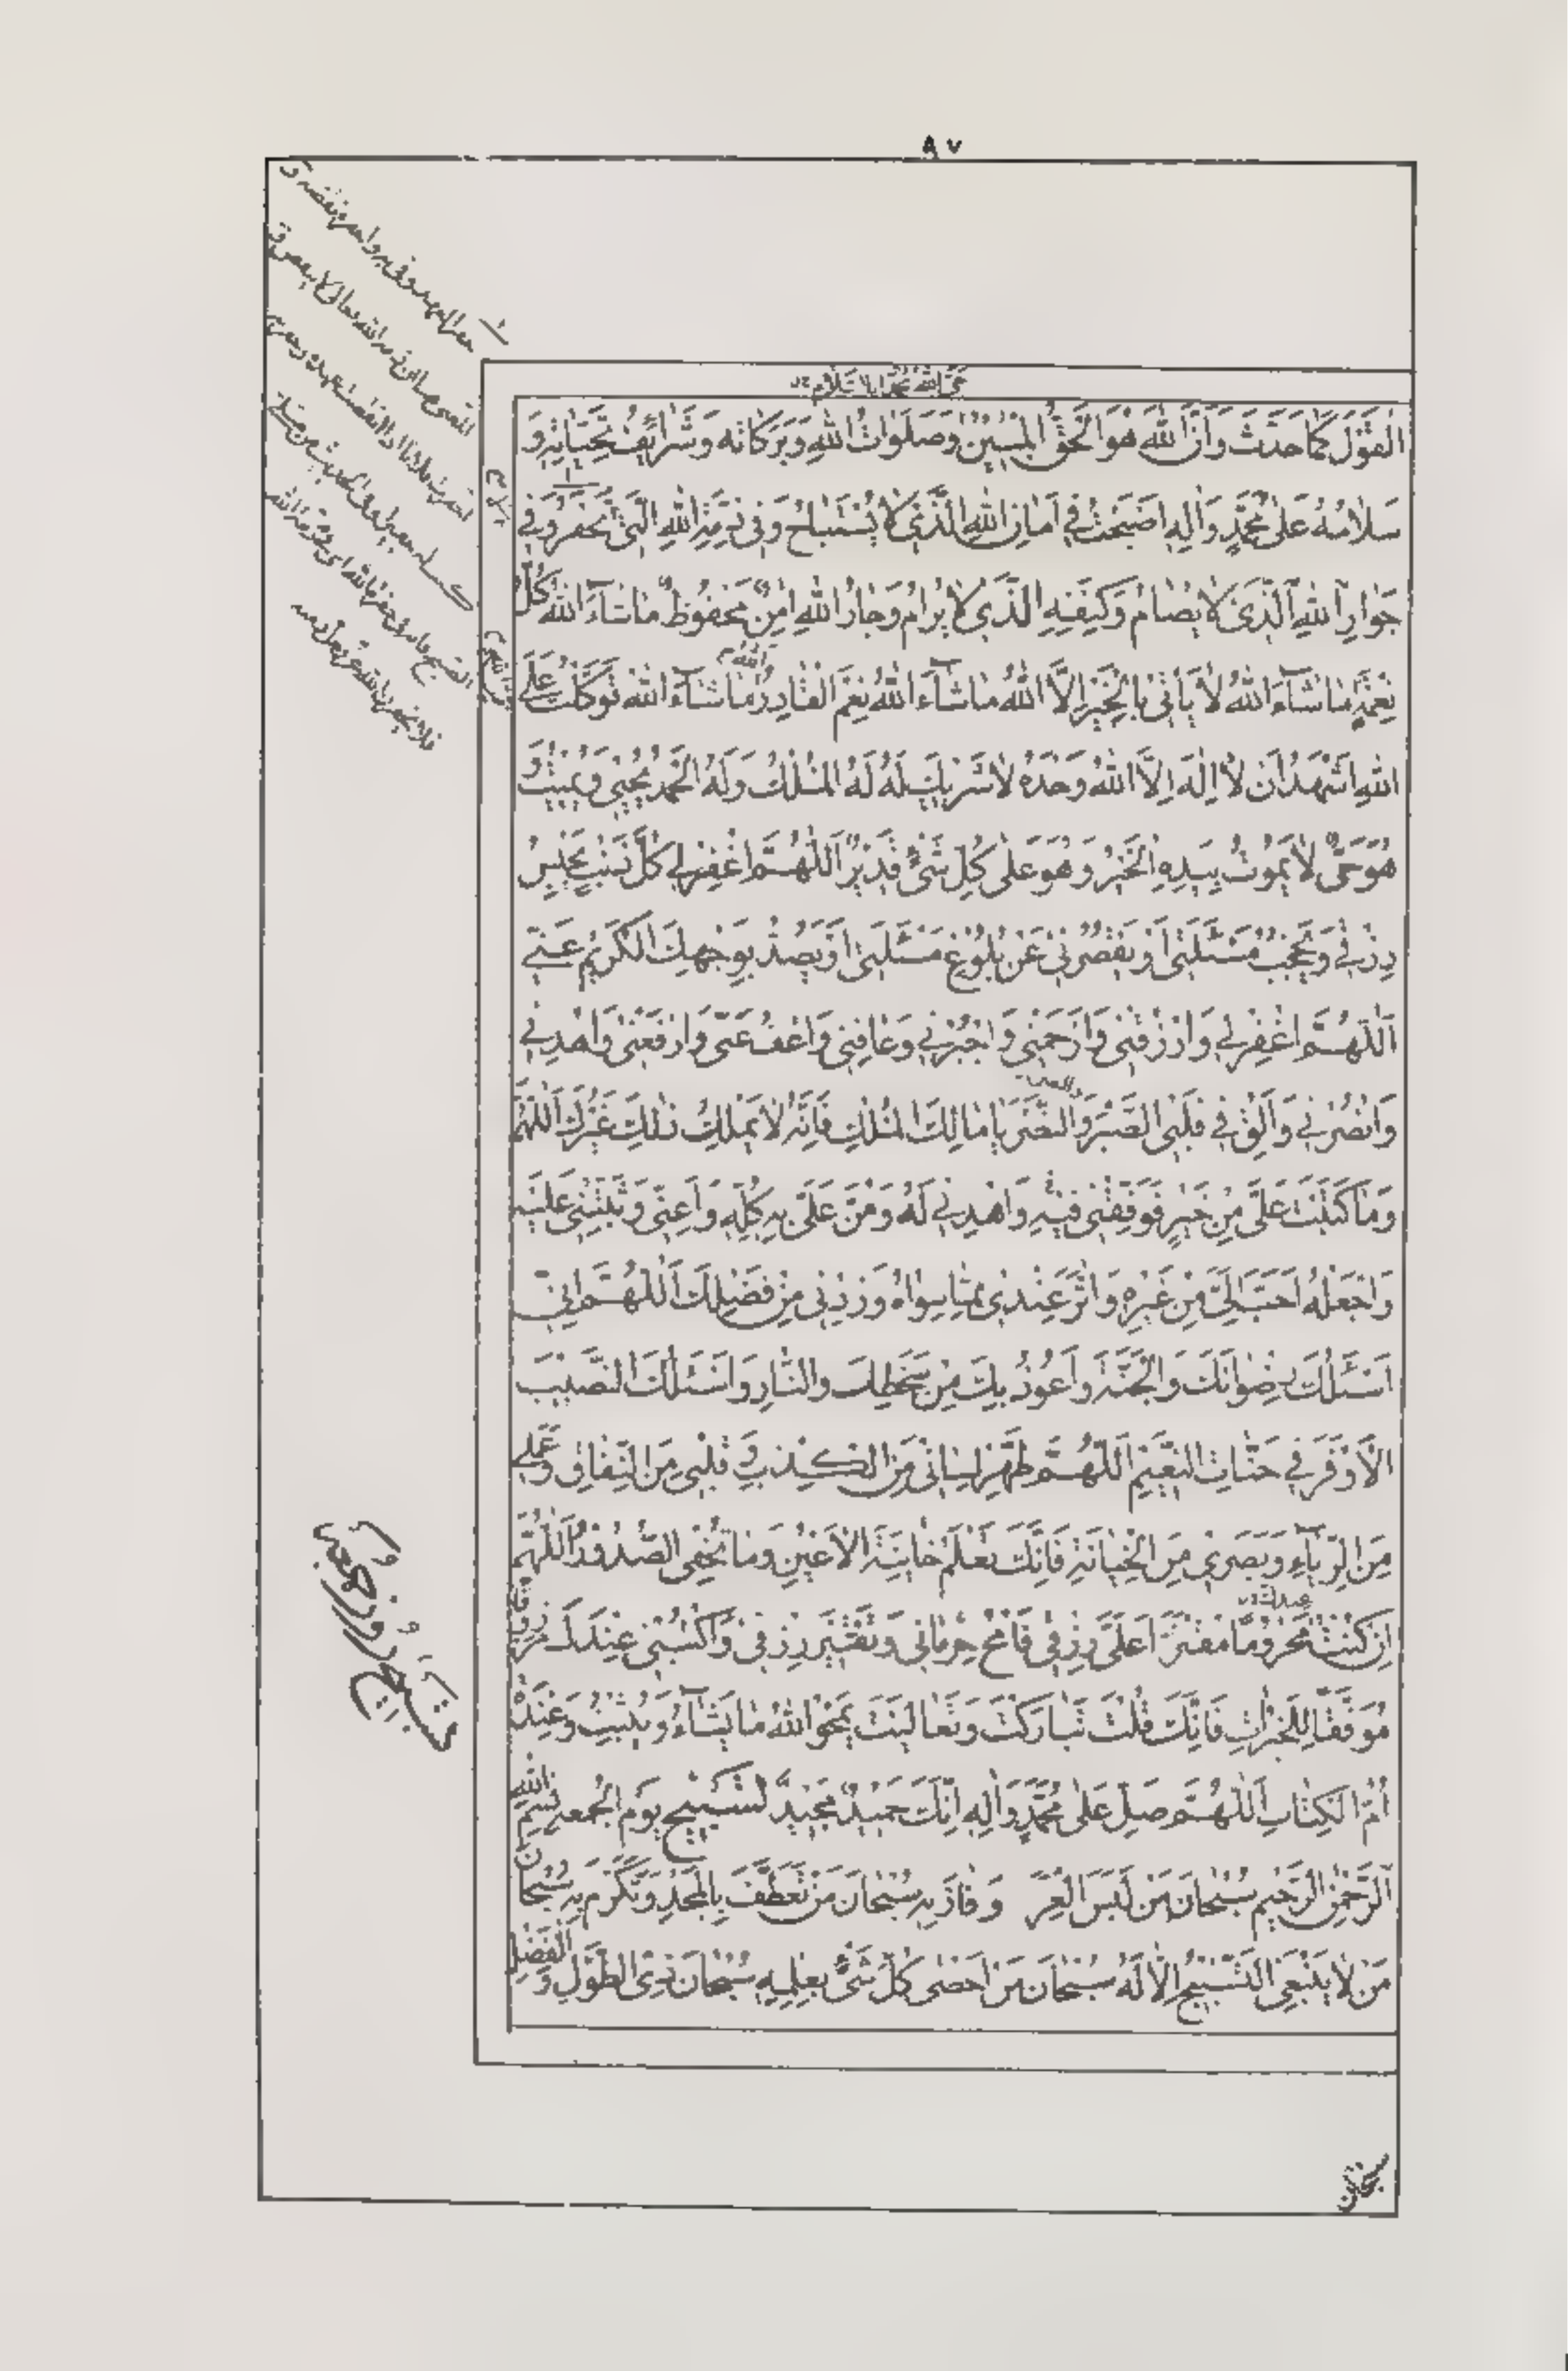 ٨٧
حَيَّ اللهُ مُحَمَّدًا بِالسَّلَامِ
الْقَوْلَ كَمَا حَدَّثَ وَاَنَّ اللهَ هُوَ الْحَقُّ الْمُبِيْنُ وَصَلَوَاتُ اللهِ وَبَرَكَاتُهُ وَشَرَائِفُ تَحِيَّاتِهِ وَ
سَلَامُهُ عَلٰى مُحَمَّدٍ وَاٰلِهِ اَصْبَحْتُ فِي اَمَانِ اللهِ الَّذِي لَا يُسْتَبَاحُ وَفِي ذِمَّةِ اللهِ الَّتِي لَا تُخْفَرُ وَفِي
جِوَارِ اللهِ الَّذِي لَا يُضَامُ وَكَنَفِهِ الَّذِي لَا يُرَامُ وَجَارُ اللهِ اٰمِنٌ مَحْفُوظٌ مَا شَاءَ اللهُ كُلُّ
نِعْمَةٍ مَا شَاءَ اللهُ لَا يَاْتِي بِالْخَيْرِ اِلَّا اللهُ مَا شَاءَ اللهُ نِعْمَ الْقَادِرُ اللهُ مَا شَاءَ اللهُ تَوَكَّلْتُ عَلَى
اللهِ اَشْهَدُ اَنْ لَا اِلٰهَ اِلَّا اللهُ وَحْدَهُ لَا شَرِيْكَ لَهُ لَهُ الْمُلْكُ وَلَهُ الْحَمْدُ يُحْيِي وَيُمِيْتُ وَ
هُوَ حَيٌّ لَا يَمُوْتُ بِيَدِهِ الْخَيْرُ وَهُوَ عَلٰى كُلِّ شَيْءٍ قَدِيْرٌ اَللّٰهُمَّ اغْفِرْ لِي كُلَّ ذَنْبٍ يَحْبِسُ
رِزْقِي وَيَحْجُبُ مَسْئَلَتِي اَوْ يَقْصُرُنِي عَنْ بُلُوْغِ مَسْئَلَتِي اَوْ يَصُدُّ بِوَجْهِكَ الْكَرِيْمِ عَنِّي
اَللّٰهُمَّ اغْفِرْ لِي وَارْزُقْنِي وَارْحَمْنِي وَاجْبُرْنِي وَعَافِنِي وَاعْفُ عَنِّي وَارْفَعْنِي وَاهْدِنِي
وَانْصُرْنِي وَاَلْقِ فِي قَلْبِي الصَّبْرَ وَالنَّصْرَ يَا مَالِكَ الْمُلْكِ فَاِنَّهُ لَا يَمْلِكُ ذٰلِكَ غَيْرُكَ اَللّٰهُمَّ
وَمَا كَتَبْتَ عَلَيَّ مِنْ خَيْرٍ فَوَفِّقْنِي فِيْهِ وَاهْدِنِي لَهُ وَمُنَّ عَلَيَّ بِهِ كُلِّهِ وَاَعِنِّي وَثَبِّتْنِي عَلَيْهِ
وَاجْعَلْهُ اَحَبَّ اِلَيَّ مِنْ غَيْرِهِ وَاٰثَرَ عِنْدِي مِمَّا سِوَاهُ وَزِدْنِي مِنْ فَضْلِكَ اَللّٰهُمَّ اِنِّي
اَسْئَلُكَ رِضْوَانَكَ وَالْجَنَّةَ وَاَعُوْذُ بِكَ مِنْ سَخَطِكَ وَالنَّارِ وَاَسْئَلُكَ النَّصِيْبَ
الْاَوْفَرَ فِي جَنَّاتِ النَّعِيْمِ اَللّٰهُمَّ طَهِّرْ لِسَانِي مِنَ الْكِذْبِ وَقَلْبِي مِنَ النِّفَاقِ وَعَمَلِي
مِنَ الرِّيَاءِ وَبَصَرِي مِنَ الْخِيَانَةِ فَاِنَّكَ تَعْلَمُ خَائِنَةَ الْاَعْيُنِ وَمَا تُخْفِي الصُّدُوْرُ اَللّٰهُمَّ
اِنْ كُنْتُ عِنْدَكَ مَحْرُوْمًا مُقْتَرًا عَلَيَّ رِزْقِي فَامْحُ حِرْمَانِي وَتَقْتِيْرَ رِزْقِي وَاكْتُبْنِي عِنْدَكَ مَرْزُوْقًا
مُوَفَّقًا لِلْخَيْرَاتِ فَاِنَّكَ قُلْتَ تَبَارَكْتَ وَتَعَالَيْتَ يَمْحُو اللهُ مَا يَشَاءُ وَيُثْبِتُ وَعِنْدَهُ
اُمُّ الْكِتَابِ اَللّٰهُمَّ صَلِّ عَلٰى مُحَمَّدٍ وَاٰلِهِ اِنَّكَ حَمِيْدٌ مَجِيْدٌ تَسْبِيْحُ يَوْمِ الْجُمْعَةِ بِسْمِ اللهِ
الرَّحْمٰنِ الرَّحِيْمِ سُبْحَانَ مَنْ لَبِسَ الْعِزَّ وَفَازَ بِهِ سُبْحَانَ مَنْ تَعَطَّفَ بِالْمَجْدِ وَتَكَرَّمَ بِهِ سُبْحَانَ
مَنْ لَا يَنْبَغِي التَّسْبِيْحُ اِلَّا لَهُ سُبْحَانَ مَنْ اَحْصٰى كُلَّ شَيْءٍ بِعِلْمِهِ سُبْحَانَ ذِي الطَّوْلِ وَالْفَضْلِ
تسبیح روز جمعه
سبحان